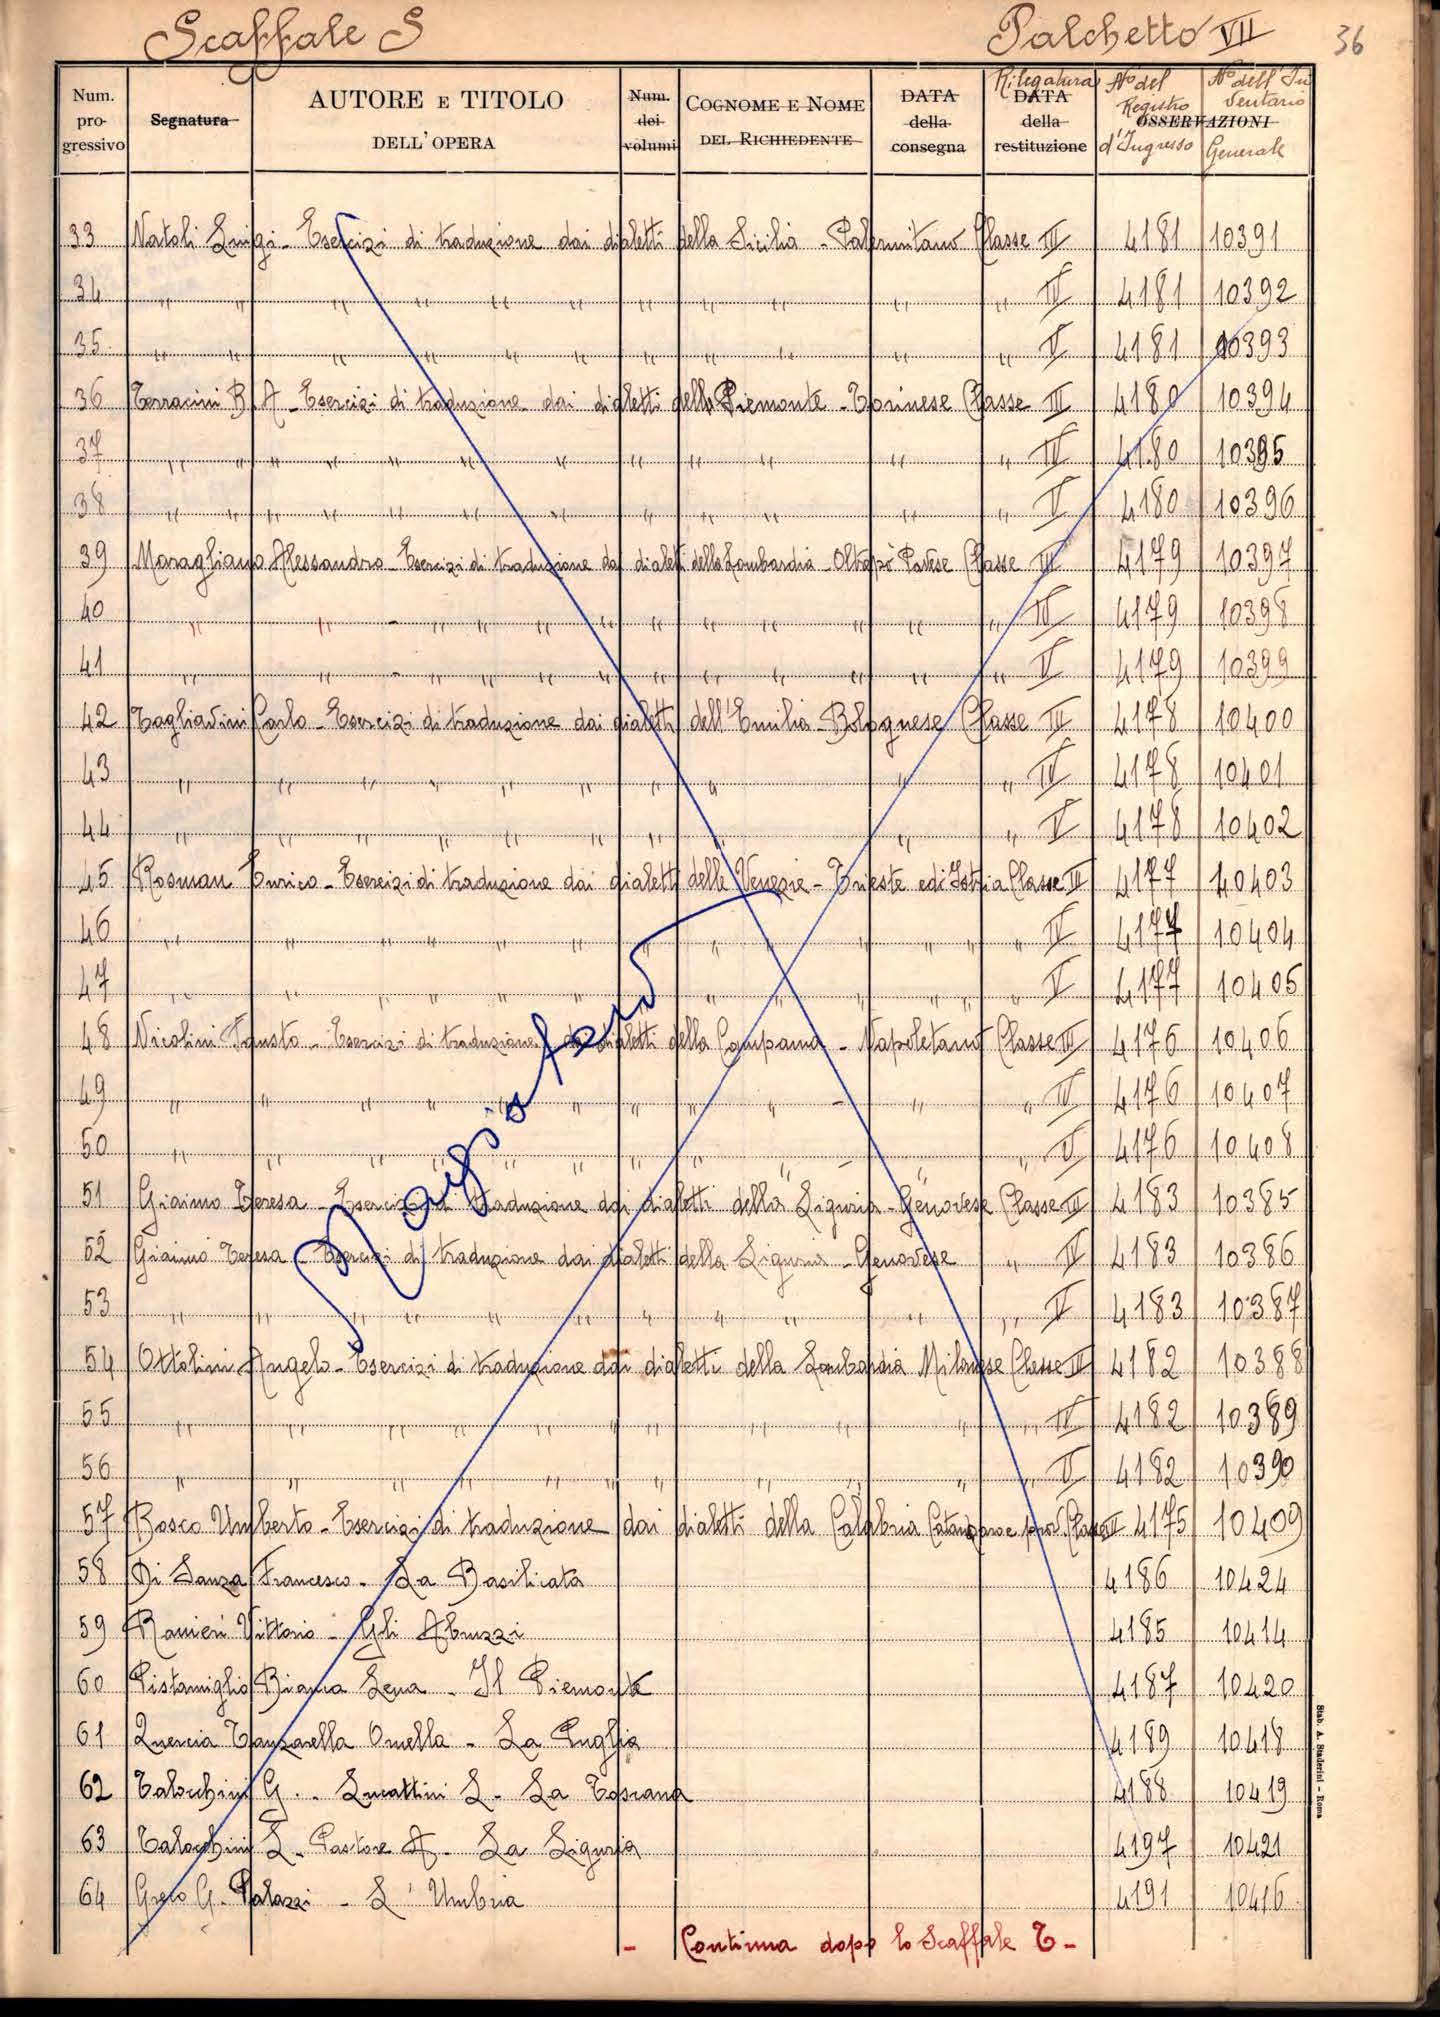 Scaffale S Palchetto VII 36
Num. progressivo Segnatura AUTORE E TITOLO DELL'OPERA Num. dei volumi COGNOME E NOME DEL RICHIEDENTE DATA della consegna DATA della restituzione OSSERVAZIONI
Rilegatura No del Registro d'Ingresso No dell'Inventario Generale
33 Natoli Luigi - Esercizi di traduzione dai dialetti della Sicilia - Palermitano Classe III 4181 10391
34 " " " " " " " " " " " IV 4181 10392
35 " " " " " " " " " " " V 4181 10393
36 Terracini B. A - Esercizi di traduzione dai dialetti della Piemonte - Torinese Classe III 4180 10394
37 " " " " " " " " " " " " IV 4180 10395
38 " " " " " " " " " " " " V 4180 10396
39 Maragliano Alessandro - Esercizi di traduzione dai dialetti della Lombardia - Oltrepò Pavese Classe III 4179 10397
40 " " - " " " " " " " " " " IV 4179 10398
41 " " - " " " " " " " " " " V 4179 10399
42 Tagliavini Carlo - Esercizi di traduzione dai dialetti dell'Emilia - Bolognese Classe III 4178 10400
43 " " " " " " " " " " IV 4178 10401
44 " " " " " " " " " " V 4178 10402
45 Rosman Enrico - Esercizi di traduzione dai dialetti delle Venezie - Trieste ed Istria Classe III 4177 10403
46 " " " " " " " " " " " " " IV 4177 10404
47 " " " " " " " " " " " " V 4177 10405
48 Nicolini Fausto - Esercizi di traduzione dai dialetti della Campania - Napoletano Classe III 4176 10406
49 " " " " " " " " " - " " IV 4176 10407
50 " " " " " " " " " - " " V 4176 10408
51 Giaimo Teresa - Esercizi di traduzione dai dialetti della Liguria - Genovese Classe III 4183 10385
52 Giaimo Teresa - Esercizi di traduzione dai dialetti della Liguria - Genovese " IV 4183 10386
53 " " " " " " " " " " " " V 4183 10387
54 Ottolini Angelo - Esercizi di traduzione dai dialetti della Lombardia Milanese Classe III 4182 10388
55 " " " " " " " " " " " IV 4182 10389
56 " " " " " " " " " " " V 4182 10390
57 Bosco Umberto - Esercizi di traduzione dai dialetti della Calabria Catanzaro e prov. Classe III 4175 10409
58 Di Sanza Francesco - La Basilicata 4186 10424
59 Ranieri Vittorio - Gli Abruzzi 4185 10414
60 Pistamiglio Bianca Lena - Il Piemonte 4187 10420
61 Quercia Tanzarella Ornella - La Puglia 4189 10418
62 Talocchini G. - Lucattini L - La Toscana 4188 10419
63 Talocchini L - Pastore A - La Liguria 4197 10421
64 Greco G. Palazzi - L'Umbria 4191 10416
- Continua dopo lo Scaffale T -
Stab. A. Staderini - Roma